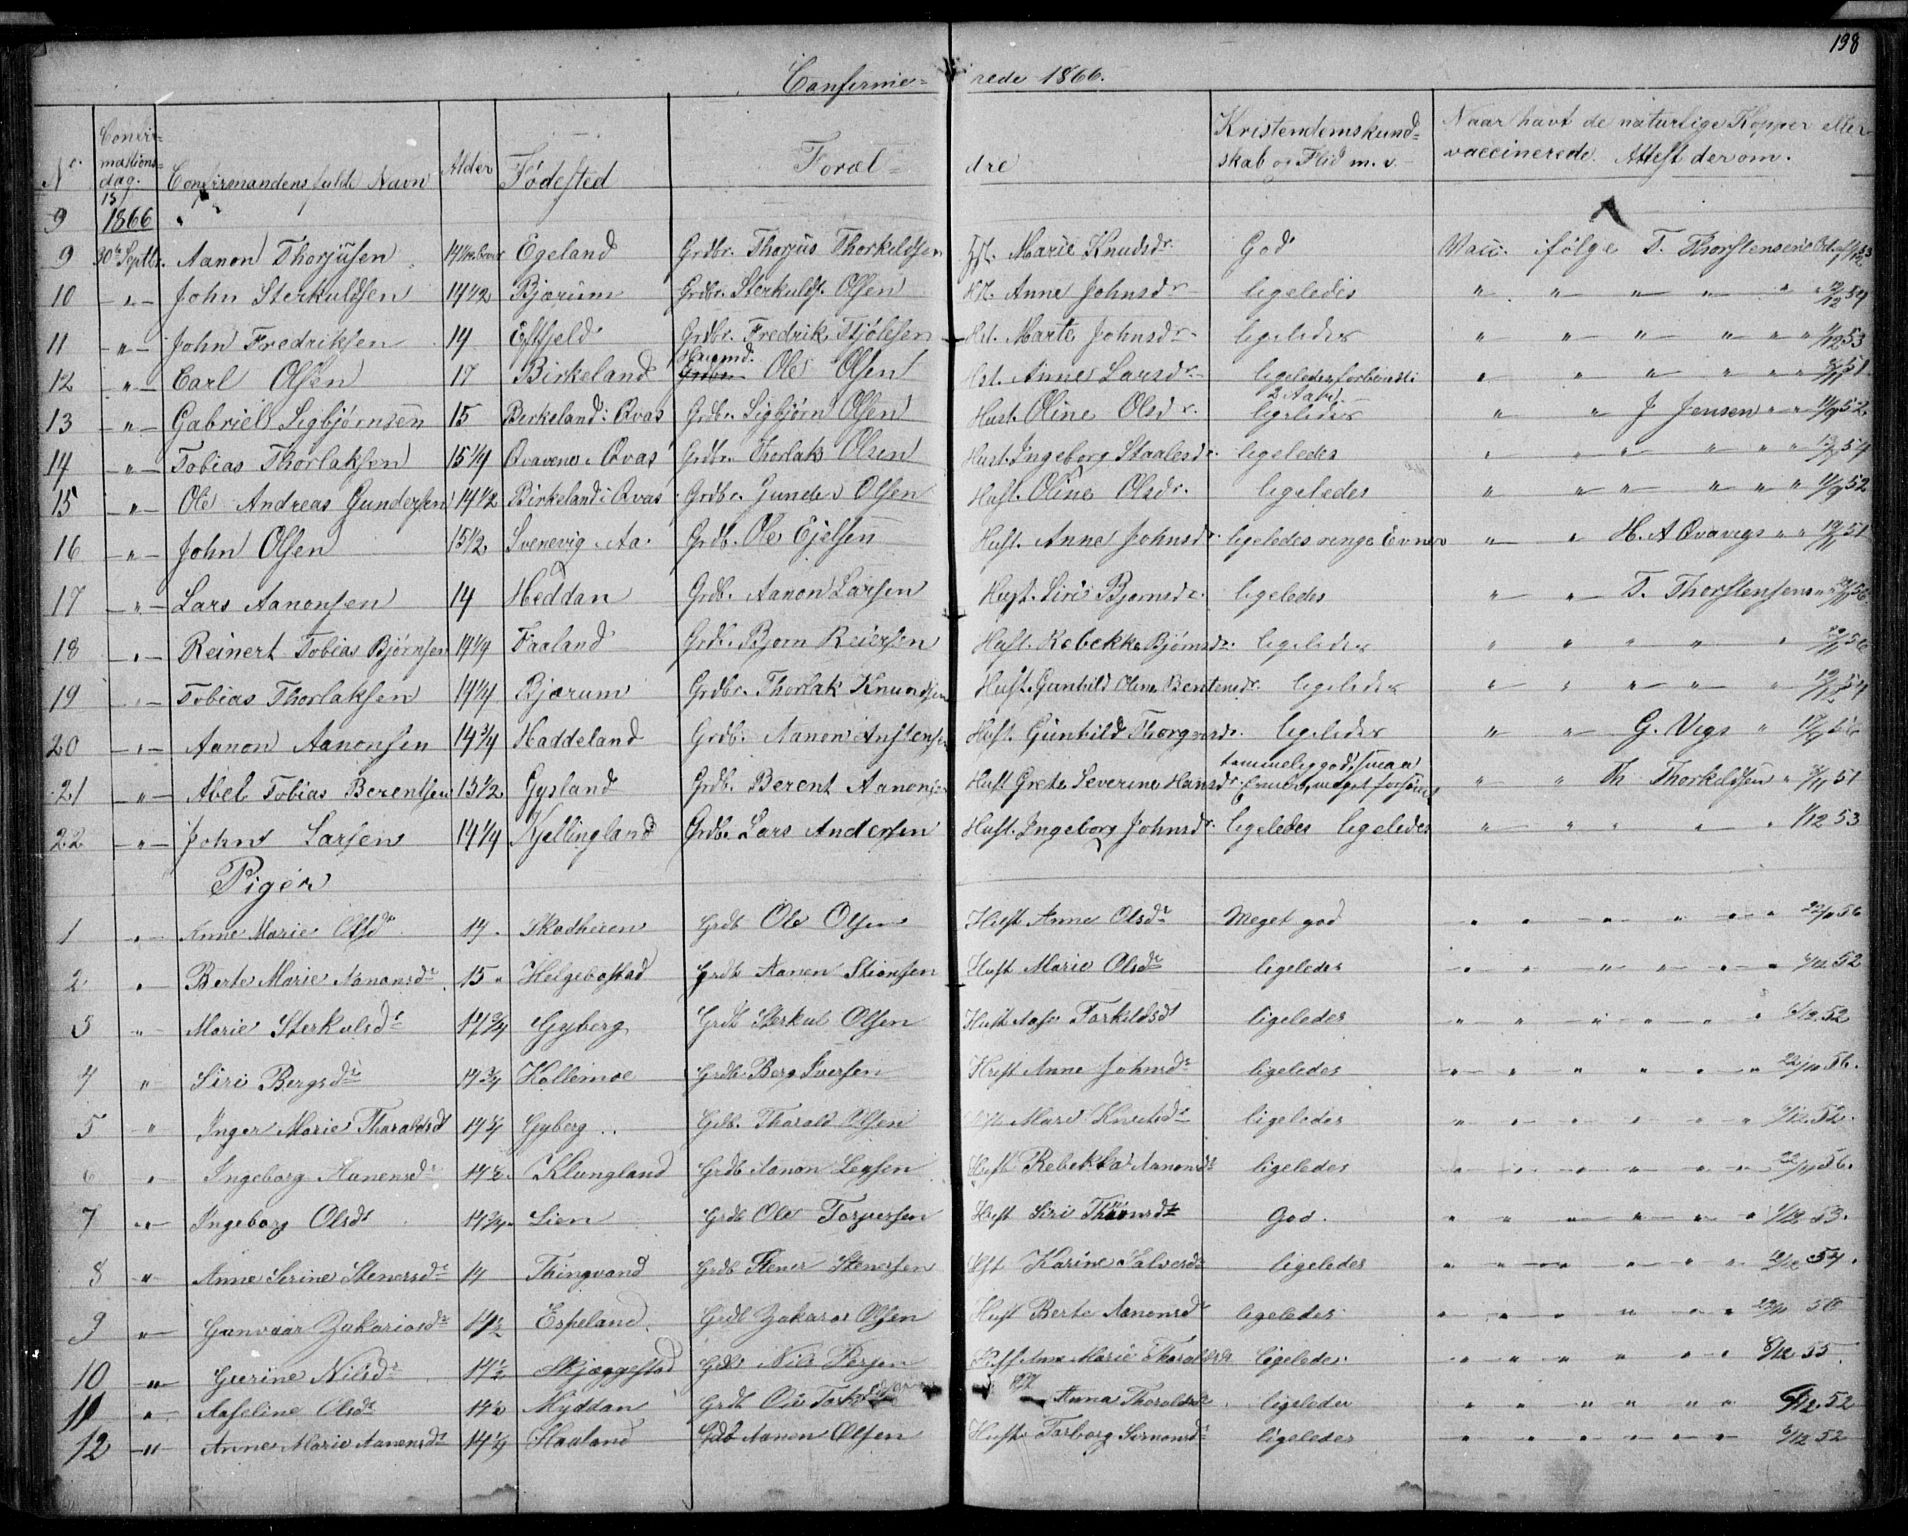 198
Confirme= rede 1866.
No. Confir=mations=dag. Confirmandens fulde Navn Alder Fødested Foræl= dre Kristendomskund=skab og Flid m. v. Naar havt de naturlige Kopper eller vaccinerede. Attest derom.
9 1866
9 30te Septbr. Aanon Thorjusen Egeland Grdbr. Thorjus Thorkildsen Hst. Marie Knudsdr. God Vacc. ifølge T. Thorstensens
10 " John Sterkuldsen 14 1/2 Bjørum Grdbr. Sterkuld Olsen Hst. Anne Johnsdr. ligeledes " " " " " 54
11 " John Fredriksen 14 Eftfjeld Grdbr. Fredrik Hst. Marte Johnsdr. ligeledes " " " " " " 1/12 53
12 " Carl Olsen 17 Birkeland Ole Olsen Hst. Anne Larsdr. ligeledes " " " " " " 51
13 " Gabriel Sigbjørnsen 15 Birkeland i Qvas Grdbr. Sigbjørn Olsen Hust. Oline Olsdr. ligeledes " " J Jensen " " 11/9 52
14 " Tobias Thorlaksen 15 1/4 Qvavene i Qvas Grdbr. Thorlak Olsen Hust. Ingeborg Staalesdr. ligeledes " " " " " " 54
15 " Ole Andreas Gundersen 14 1/2 Birkeland i Qvas Grdbr. Gunder Olsen Hust. Oline Olsdr. ligeledes " " " " " " 11/9 52
16 " John Olsen 15 1/2 Svenevig Aa. Grdb. Ole Ejelsen Hust. Anne Johnsdr. ligeledes ringe Evner " " H. A Qvavigs " " 51
17 " Lars Aanonsen 14 Heddan Grdb. Aanon Larsen Hust. Siri Bjornsdr. ligeledes " " T. Thorstensens 56
18 " Reinert Tobias Bjørnsen 14 1/4 Faaland Grdb. Bjorn Reiersen Hust. Rebekka Bjørnsdr. ligeledes " " " " " 56
19 " Tobias Thorlaksen 14 1/4 Bjørum Grdbr. Thorlak Knudsen Hust. Gunhild Oline Bentsensdr. ligeledes " " " " " 54
20 " Aanon Aanonsen 14 3/4 Haddeland Grdb. Aanon Hust. Gunhild ligeledes " " G. Vigs "
21 " Abel Tobias Berentsen 15 1/2 Gysland Grdb. Berent Aanonsen Hust. Grete Severine Hansdr. temmelig god, smaa Evner, meget forsømt " " Th. Thorkildsen " 51
22 " John Larsen 14 1/4 Kjellingland Grdb. Lars Andersen Hust. Ingeborg Johnsdr. ligeledes ligeledes " " " " " 1/12 53
Piger
1 " Anne Marie Olsdr 14 Skodheien Grdb Ole Olsen Hust Anne Olsdr Meget god " " " " " " 22/11 56
2 " Berte Marie Aanonsdr 15 " Helgebostad Grdb Aanen Hust Marie Olsdr ligeledes " " " " " " 6/12 52
3 " Marie Sterkulsdr 14 3/4 Gyberg Grdb Sterkul Olsen Hust Aase Torkildsdr ligeledes " " " " " " 6/12 52
4 " Siri Bergsdr 14 3/4 Kollemoe Grdb Berg Iversen Hust Anne Johnsdr ligeledes " " " " " " 22/11 56.
5 " Inger Marie Tharaldsdr 14 3/4 Gyberg Grdb. Tharald Olsen Mari Knudsdr ligeledes " " " " " " 6/12 52.
6 " Ingeborg Aanensdr 14 1/2 Klungland Grdb Aanon Hust Rebekka Aanonsdr ligeledes " " " " " " 22/11 56.
7 " Ingeborg Olsdr 14 3/4 Lien Grdb Ole Torgersen Hust Siri God. " " " " " " 1/12 53.
8 " Anne Serine Stenersdr 14 Tingvand Grdb Stener Stenersen Hst Karine Salvesdr ligeledes " " " " " " 54.
9 " Gunvaar Zakariasdr 14 1/2 Espeland Grdb Zakaras Olsen Hust Berte Aanonsdr ligeledes " " " " " " 56
10 " Gurine Nilsdr 14 1/2 Skjæggestad Grdb Nils Hust Ane Marie Tharaldsdr ligeledes " " " " " " 6/12 55.
11 " Aaseline Olsdr 14 1/2 Myddan Grdb Ole Anna Tharaldsdr ligeledes " " " " " " 6/12 52
12 " Anne Marie Aanensdr 14 1/4 Haaland Grdb Aanen Olsen Hust Torborg Simonsdr ligeledes " " " " " " 6/12 52